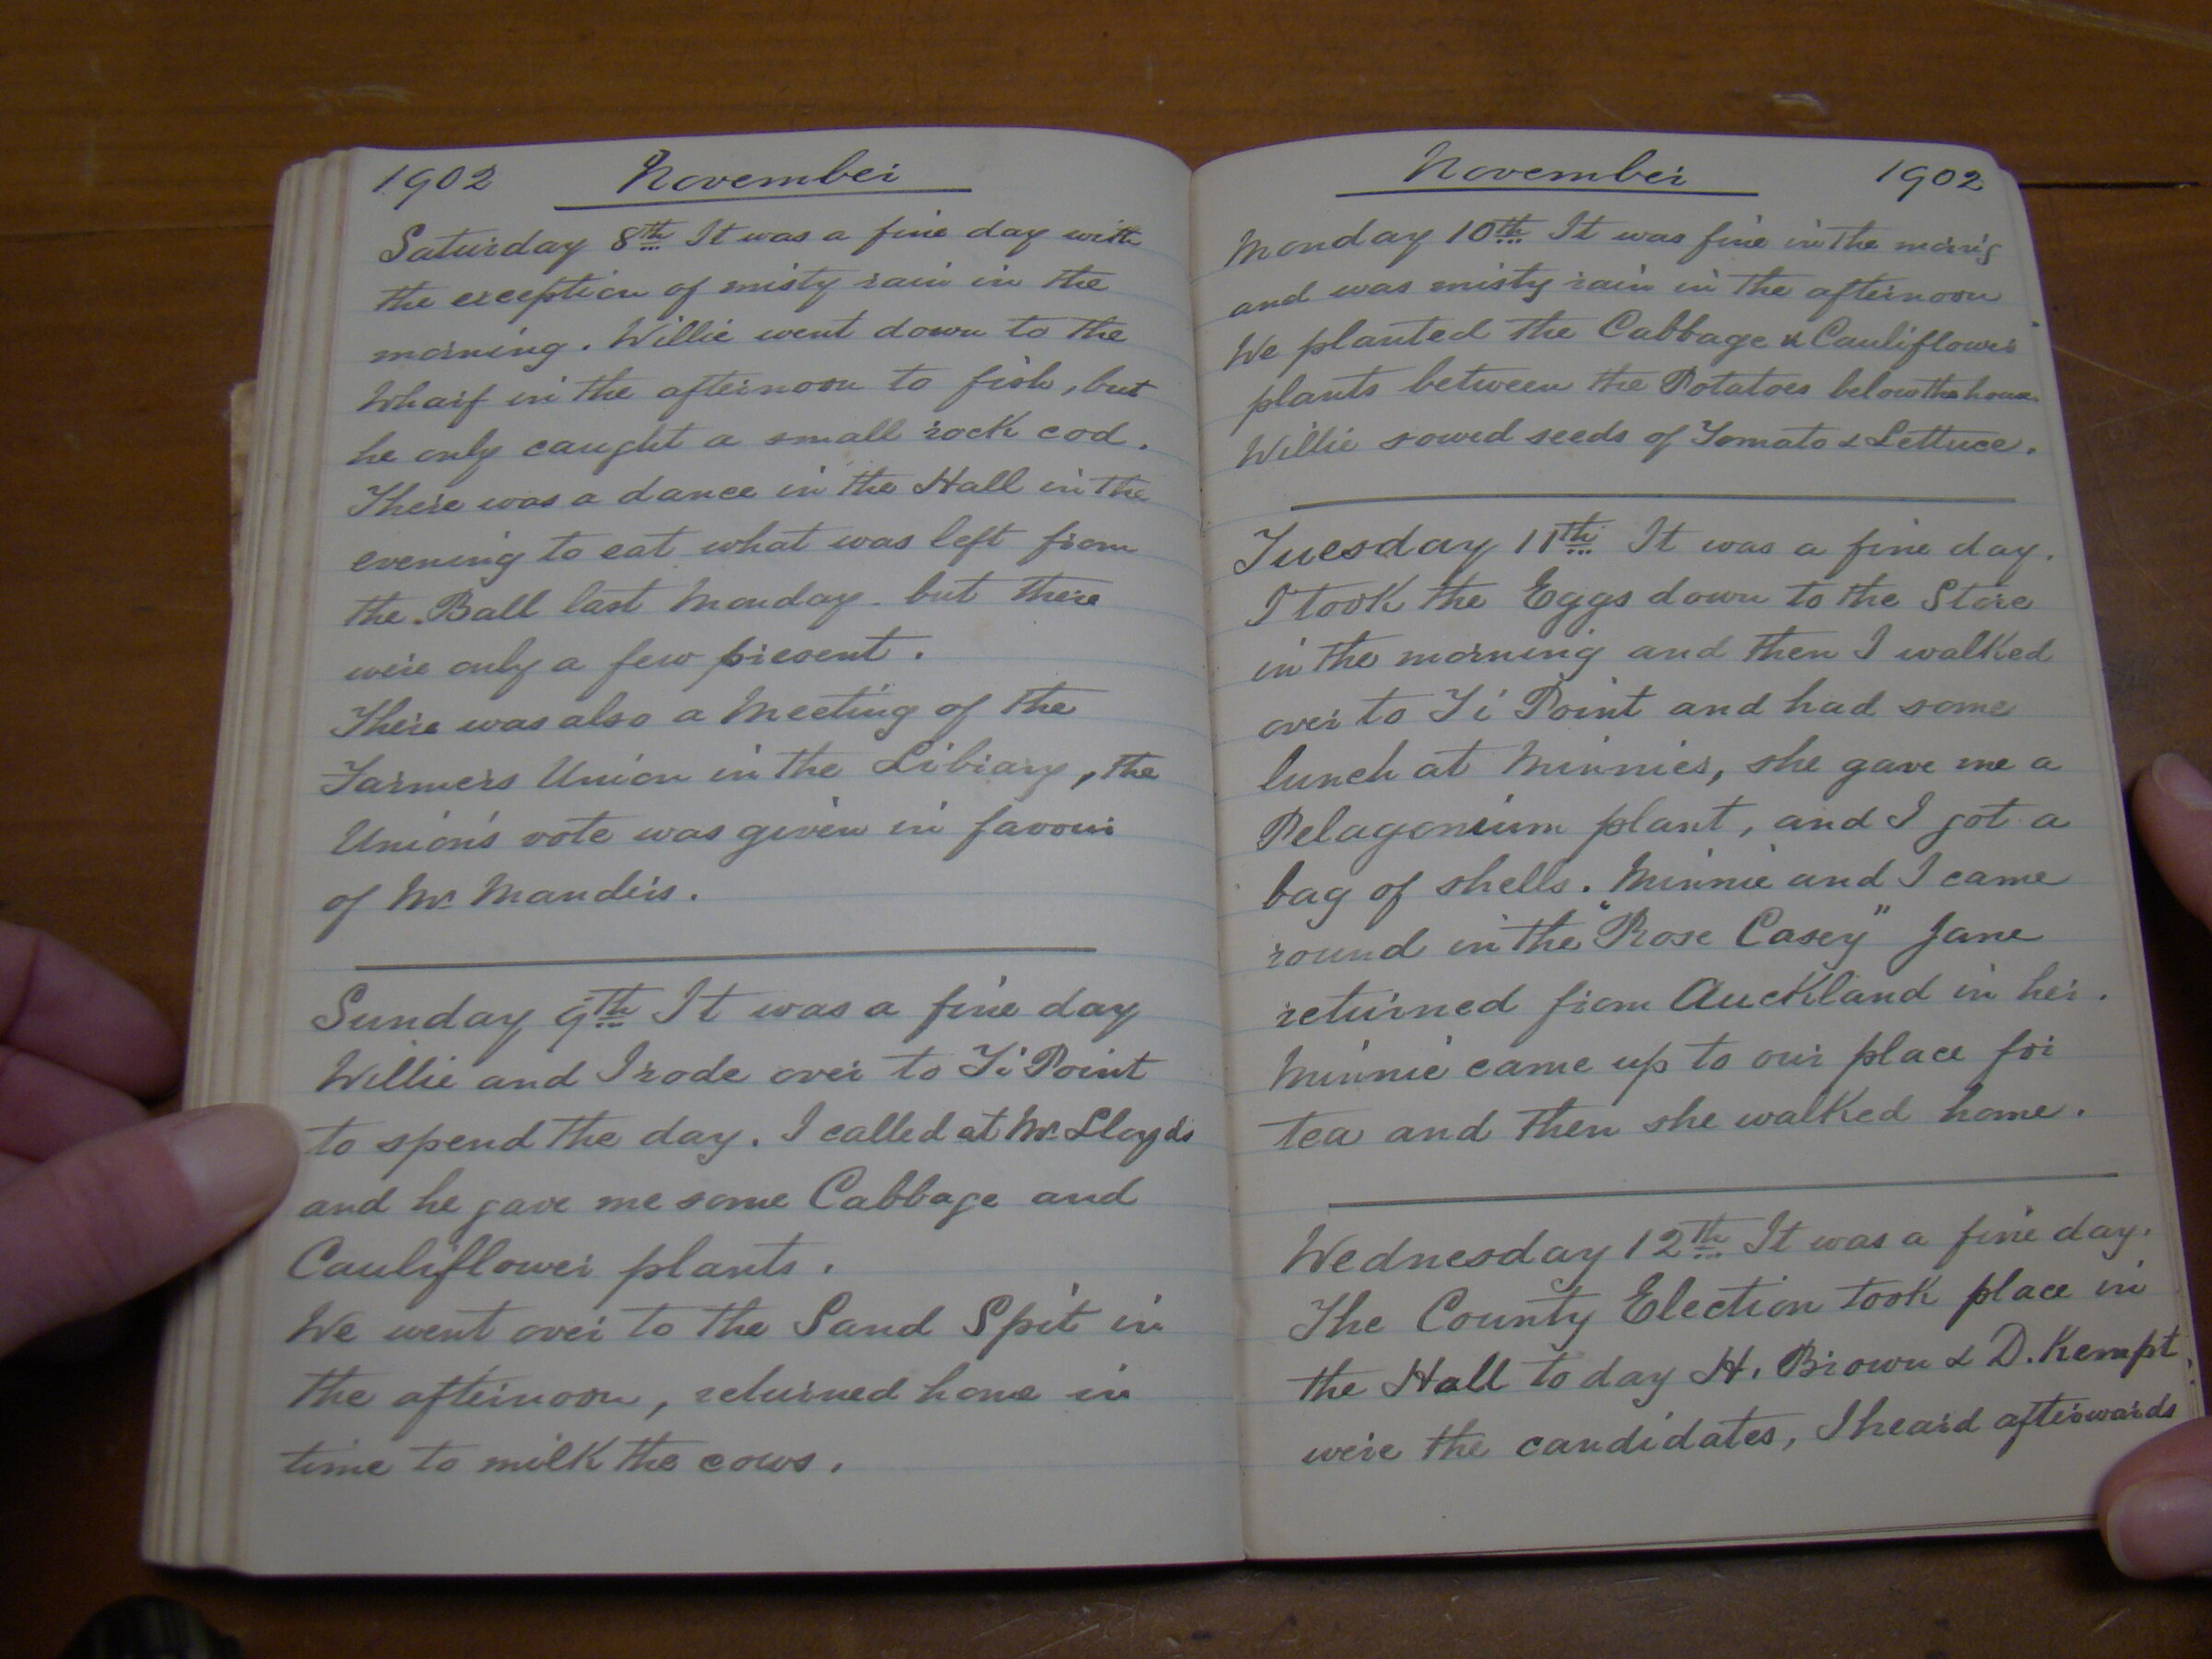 1902 November
Saturday 8th It was a fine day with
the exception of misty rain in the
morning. Willie went down to the
Wharf in the afternoon to fish, but
he only caught a small rock cod.
There was a dance in the Hall in the
evening to eat what was left from
the Ball last Monday. but there
were only a few present.
There was also a Meeting of the
Farmers Union in the Library, the
Union's vote was given in favour
of Mr Manders.
Sunday 9th It was a fine day
Willie and I rode over to Ti Point
to spend the day. I called at Mr Lloyds
and he gave me some Cabbage and
Cauliflower plants.
We went over to the Sand Spit in
the afternoon, returned home in
time to milk the cows.
November 1902
Monday 10th It was fine in the morn'g
and was misty rain in the afternoon
We planted the Cabbage & Cauliflower
plants between the Potatoes below the house
Willie sowed seeds of Tomato & Lettuce.
Tuesday 11th It was a fine day.
I took the Eggs down to the Store
in the morning and then I walked
over to Ti Point and had some
lunch at Minnies, she gave me a
Pelagonium plant, and I got a
bag of shells. Minnie and I came
round in the "Rose Casey" Jane
returned from Auckland in her.
Minnie came up to our place for
tea and then she walked home.
Wednesday 12th It was a fine day.
The County Election took place in
the Hall to day H. Brown & D. Kempt.
were the candidates, I heard afterwards